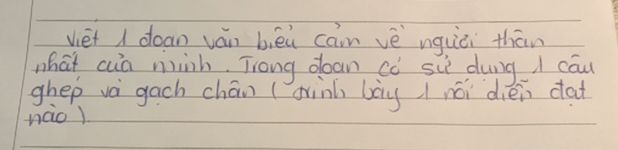 viết 1 đoạn văn biểu cảm về người thân
nhất của mình. Trong đoạn có sử dụng 1 câu
ghép và gạch chân ( trình bày 1 nối diễn đạt
nào ).